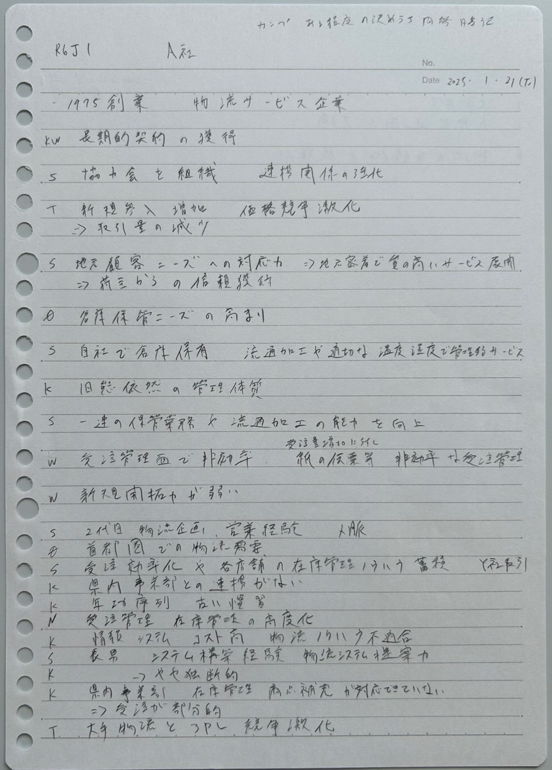 カンプ ある程度の決め方 内容 暗記
R6J1 A社
No.
Date 2025・1・21(Tu)
・1975創業 物流サービス企業
KW 長期的契約の獲得
S 協力会を組織 連携関係の強化
T 新規参入増加 価格競争激化
⇒取引量の減少
S 地元顧客ニーズへの対応力 ⇒地元密着で質の高いサービス展開
⇒荷主からの信頼獲得
O 倉庫保管ニーズの高まり
S 自社で倉庫保有 流通加工や適切な温度湿度で管理するサービス
K 旧態依然の管理体質
S 一連の保管業務や流通加工の能力を向上
受注量増加に対し
W 受注管理面で非効率 紙の伝票等 非効率な受注管理
W 新規開拓力が弱い
S 2代目 物流企画、営業経験 人脈
O 首都圏での物流需要
S 受注効率化や各店舗の在庫管理ノウハウ蓄積 Y社取引
K 県内事業部との連携がない
K 年功序列 古い慣習
N 受注管理 在庫管理の高度化
K 情報システム コスト高 物流ノウハウ不適合
S 長男 システム構築経験 物流システム提案力
K →やや独断的
K 県内事業部 在庫管理 商品補充が対応できていない
⇒受注が部分的
T 大手物流と 競争激化